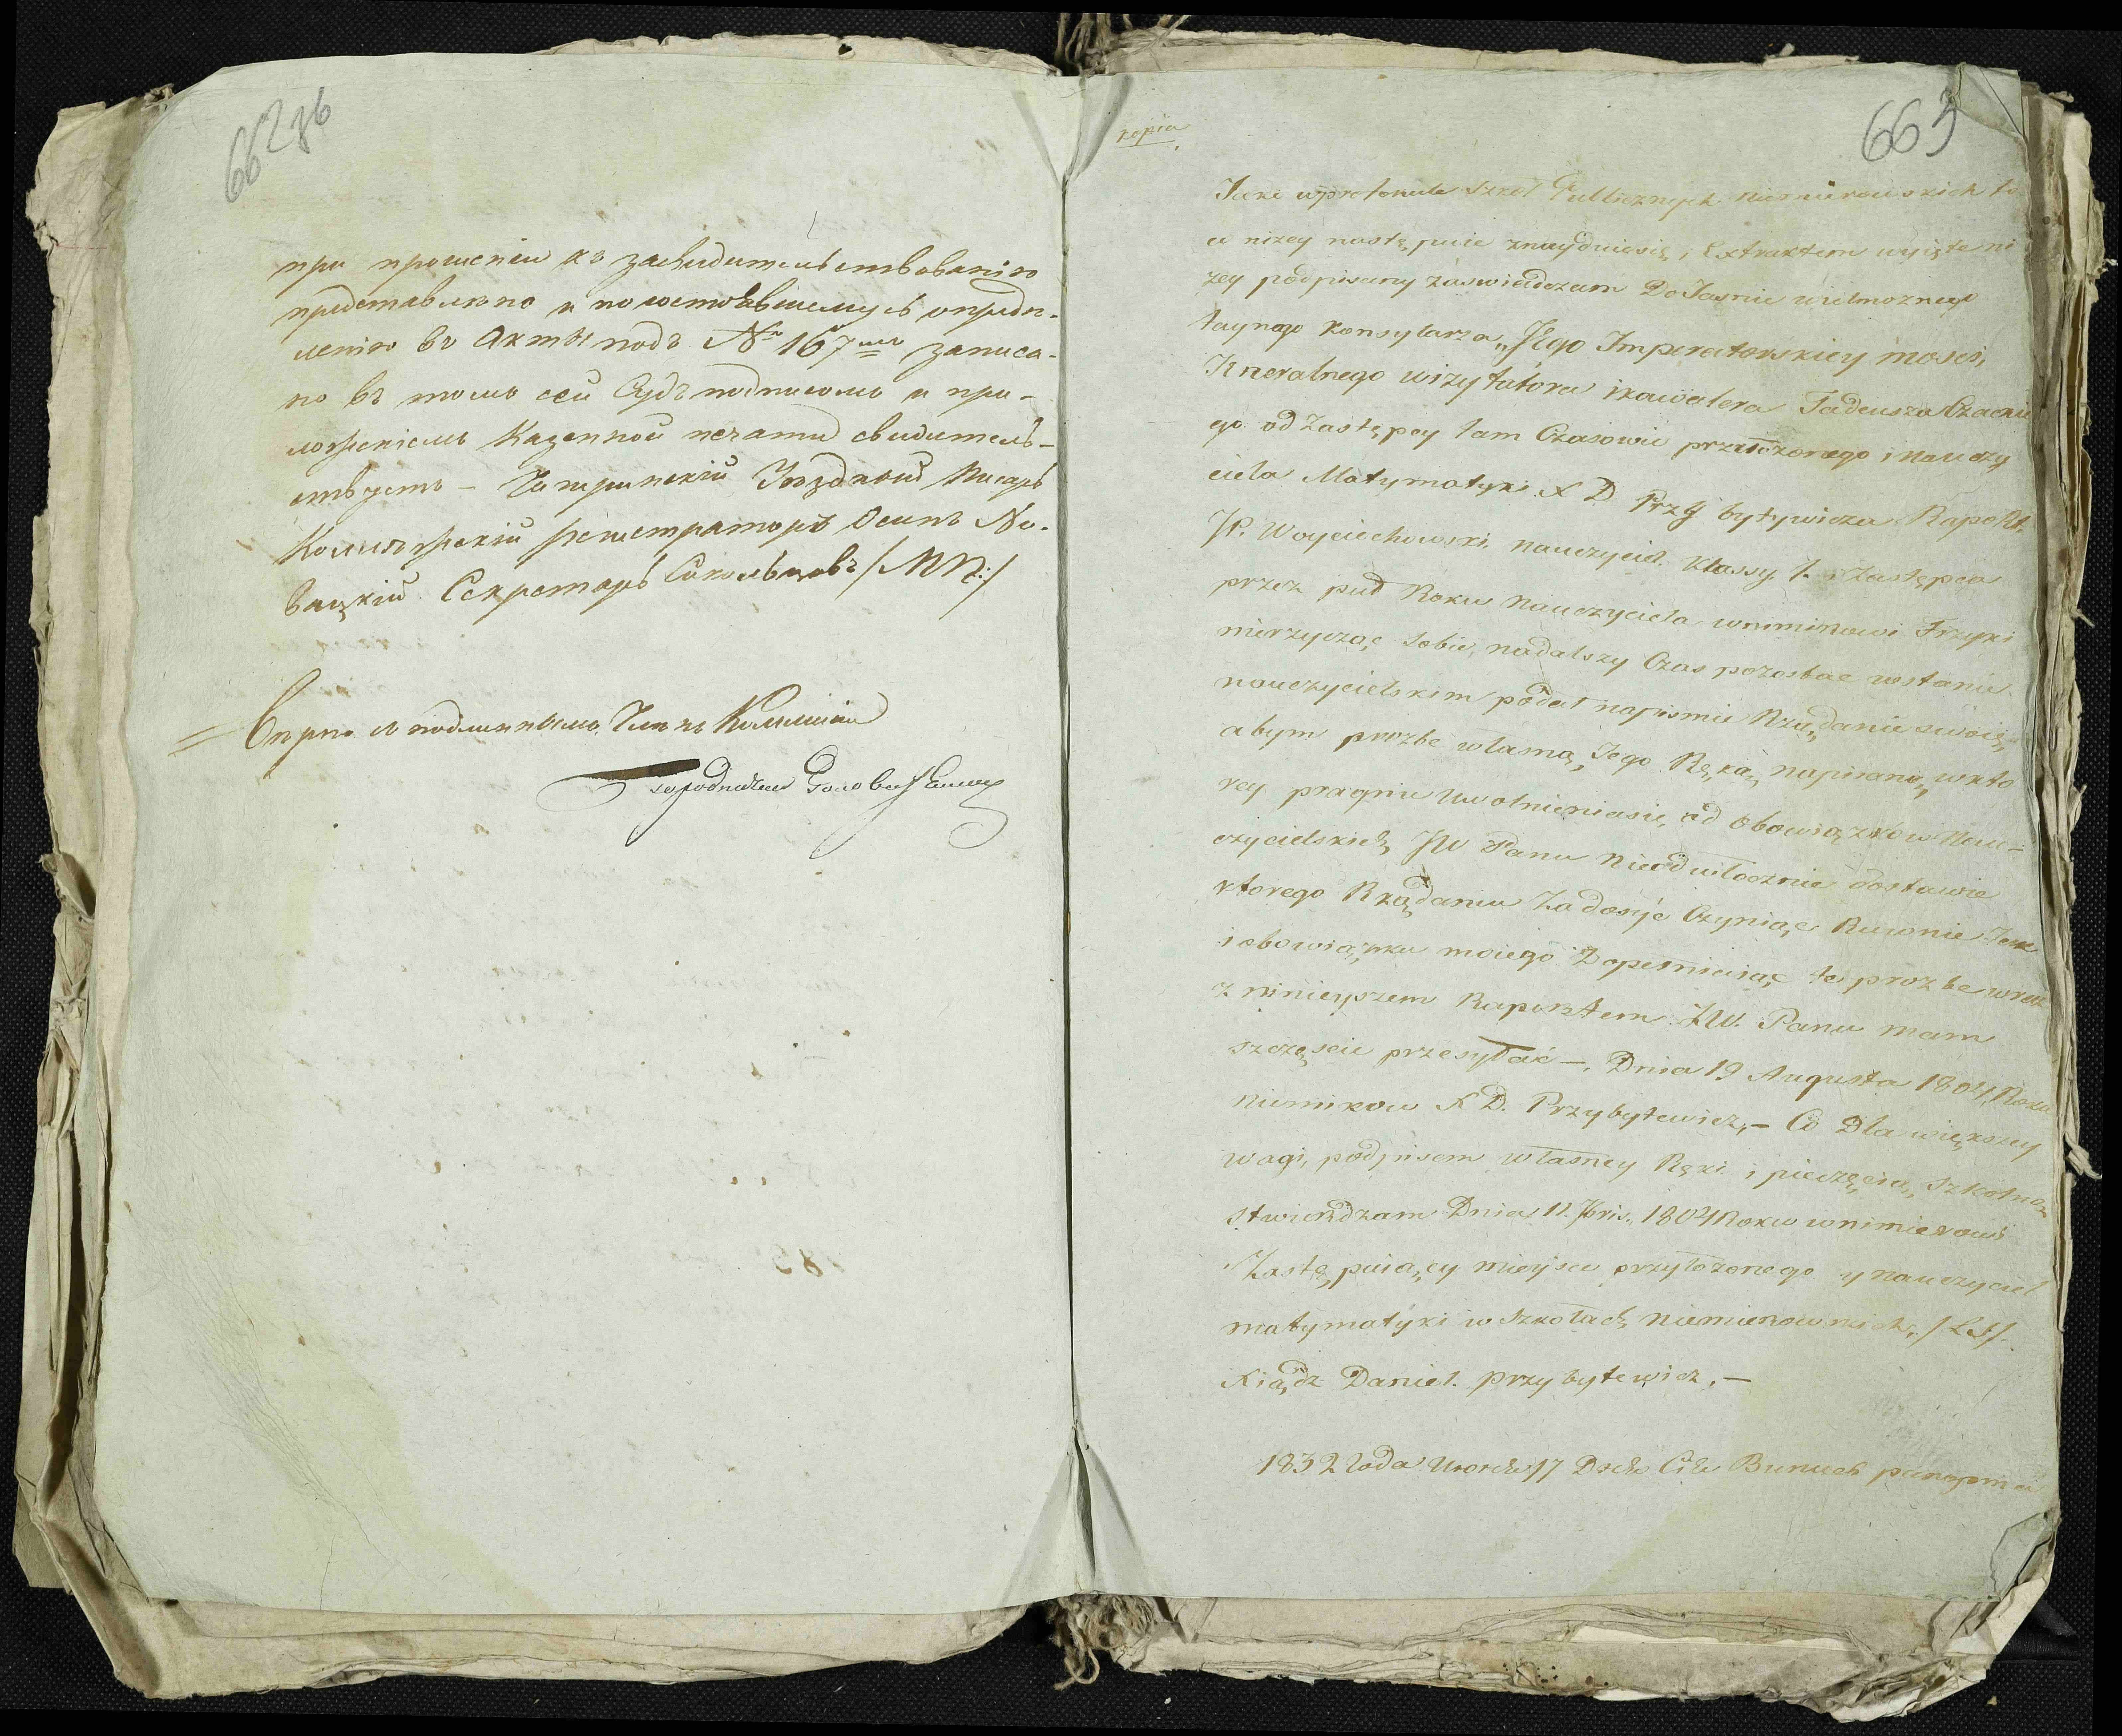 662 зв
при прошеніи къ засвидетельствованію
представлено и по состоявшемусь опреде-
ленію въ Акты подъ № 167мъ записа-
но въ томъ сей Судъ подписомъ и при-
ложеніемъ Казенной печати свидетель-
ствуетъ – Чигиринскій Уездный Писарь
Колижскій регистраторъ Осипъ Но-
вацкій Секретарь Сокольцовъ / МП: /
= Верно съ подлиннымъ Членъ Коммисіи
Городничий
663
kopia
Jako w protokule Szkoł Publicznych niemirowskich ta
a nizey nastę,puie znayduiesię i Extraktem wyięte ni
zey podpisany zaswiadczam Do Jasnie wielmoznego
taynego konsylarza „JEgo Imperatorskiey mosci,
Jeneralnego wizytatora ikawalera Tadeusza Czackie
go od Zastępcy tam Czasowie przełozonego i nauczy
ciela Matymatyki X D Przybytywicza Raport.
JP. Woyciechowski nauczyciel Klassy 1. Zastępca
przez puł Roku Nauczyciela wnimirowi Fizyki
nierzycząc sobie, nadalszy Czas pozostac wstanie
nauczycielskim podał napismie Rządanie swoie,
abym prozbe własną, Jego Ręką, napisaną, wkto
rey pragnie Uwolnieniasie, od obowiązkow Nau-
czycielskich, JW Panu Nieodwłocznie dostawie
ktorego Rządaniu Zadosyc Czyniąc Ruwnie Jak
i obowiązku moiego Dopełniaiąc te prozbe wraz
z ninieyszem Raportem JW. Panu mam
szczęscie przesyłać –. Dnia 19 Augusta 1804 Roku
niemirow X D. Przybytewicz, – Co Dla większey
wagi, podpisem własney Ręki i pieczęcią, szkolną
stwierdzam Dnia 11. 1804 Roku wnimierowi
Zastę,puią,cy mieysce przyłozonego y nauczyciel
matymatyki w Szkołach, niemierowskich. / LS /.
Xiądz Daniel. przybytewicz. –
1832 Goda 17